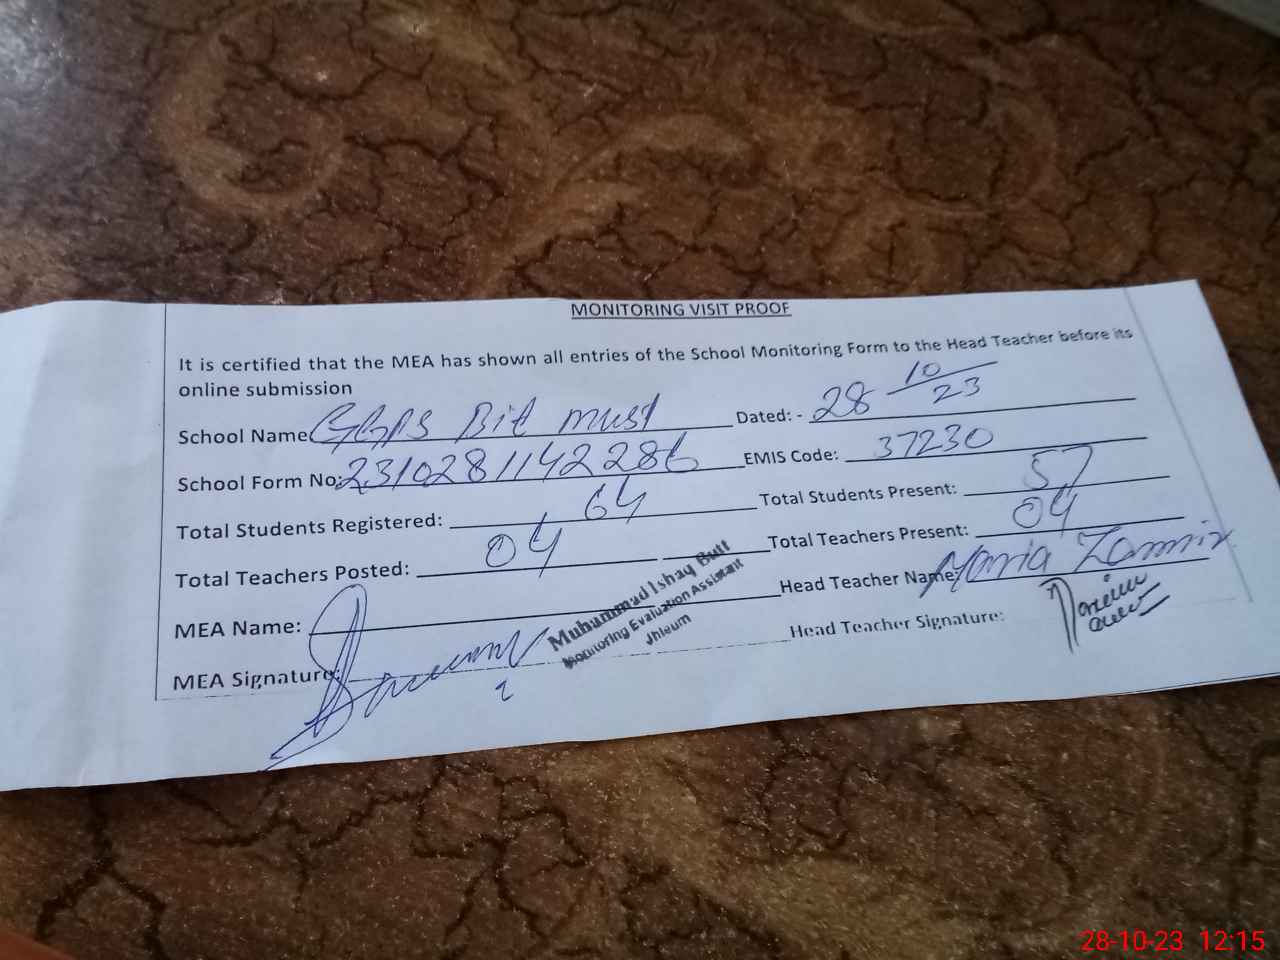 MONITORING VISIT PROOF
It is certified that the MEA has shown all entries of the School Monitoring Form to the Head Teacher before its
online submission
School Name GGPS Bit must Dated: - 28 10/23
School Form No: 2310281142286 EMIS Code: 37230
Total Students Registered: 64 Total Students Present: 57
Total Teachers Posted: 04 Total Teachers Present: 04
MEA Name: Head Teacher Name: Maria Zammir
Muhammad Ishaq Butt
Monitoring Evaluation Assistant
Jhleum
MEA Signature: Head Teacher Signature:
28-10-23 12:15